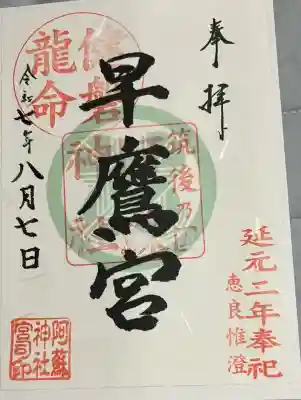 奉拝
延元二年奉祀
恵良惟澄
筑後乃
早鷹宮
健磐
龍命
令和七年八月七日
阿蘇
神社
宮司印